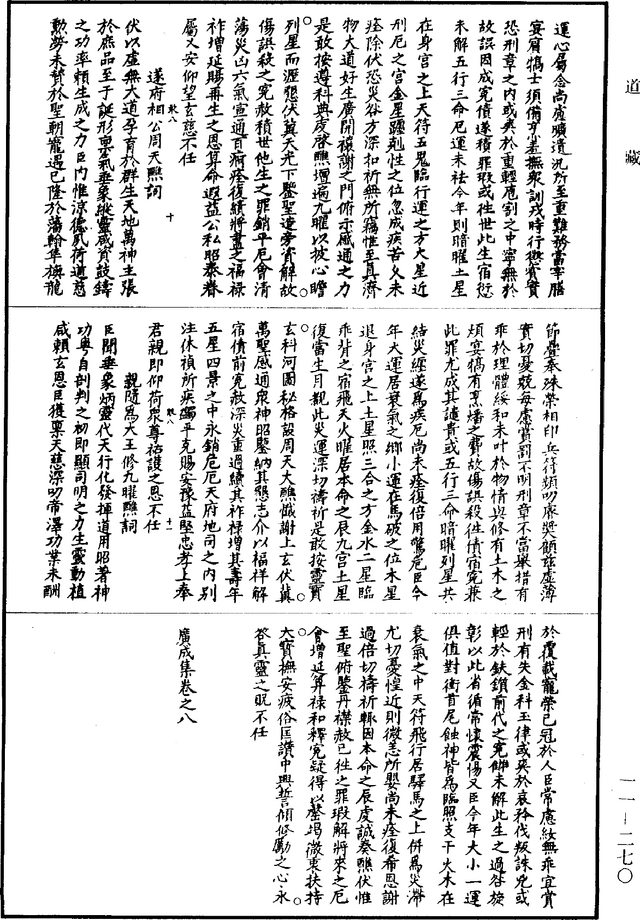 道藏
運心勵念尚慮曠遺況所至重難務當宰膳
宴賓犒士須備烹羞撫衆訓戎時行懲責實
恐刑章之內或乖於重輕庖割之中寧無於
故誤因成冤債遂積罪瑕或往世此生宿愆
未解五行三命厄運未祛今年則暗曜土星
在身宮之上天符五鬼臨行運之方火星近
刑厄之宮金星躔剋性之位忽成疾苦久未
痊除伏恐災咎方深扣祈無所竊惟至真濟
物大道好生廣開禳謝之門俯示感通之力
是敢按遵科典虔啓醮壇遍九曜以披心瞻
列星而瀝懇伏冀天光下鑒聖造旁資解故
傷誤殺之冤赦積世他生之罪銷平厄會清
蕩災凶六氣宣通百痾痊復續將盡之福祿
祚增延賜再生之恩算命遐益公私昭泰眷
屬乂安仰望玄慈不任
遂府相公周天醮詞
伏以虛無大道孕育於群生天地萬神主張
於庶品至于誕形稟氣垂象縱靈咸資鼓鑄
之功率賴生成之力臣內惟涼德夙荷道慈
勳勞未贊於聖朝寵遇已隆於藩翰隼旟龍
節疊奉殊榮相印兵符頻叨虔奬顧茲虛薄
實切憂兢每慮賞罰不明刑章不當舉措有
乖於理體綏和未叶於物情與修有土木之
煩宴犒有烹燔之費故傷誤殺往債宿冤兼
此罪尤成其譴責或五行三命暗曜列星共
結災纏遂為疾厄尚未痊復倍用驚危臣今
年大運居衰氣之鄉小運在馬破之位木星
退身宮之上土星照三合之方金水二星臨
乖背之宿飛天火曜居本命之辰九宮土星
復當生月觀此災運深切禱祈是敢按靈寶
玄科河圖秘格設周天大醮懺謝上玄伏冀
萬聖感通衆神昭鑒納其懇志介以福祥解
宿債前冤赦深災重過續其祚祿增其壽年
五星四景之中永銷危厄天府地司之內別
注休禎所疾蠲平克賜安豫益堅忠孝上奉
君親即仰荷衆尊祐護之恩不任
親隨為大王修九曜醮詞
臣聞垂象炳靈代天行化發揮道用昭著神
功粵自剖判之初即顯司明之力生靈動植
咸賴玄恩臣獲稟天慈深叨帝澤功業未酬
於覆載寵榮已冠於人臣常慮妝無乖宜賞
刑有失金科玉律或爽於哀矜伐叛誅兇或
輕於鈇鑕前代之冤讎未解此生之過咎旋
彰以此省循常懷震惕又臣今年大小一運
俱值對衝首尾蝕神皆為臨照支干火木在
衰氣之中天符飛行居驛馬之上併為災滯
尤切憂惶近則微恙所嬰尚未痊復希恩謝
過倍切禱祈輒因本命之辰虔誠奏醮伏惟
至聖俯鑒丹襟赦已往之罪瑕解將來之厄
會增延算祿和釋冤疑得以罄竭微衷扶持
大寶撫安疲俗匡讚中興誓傾修勵之心永
答真靈之貺不任
廣成集卷之八
一一—二七〇